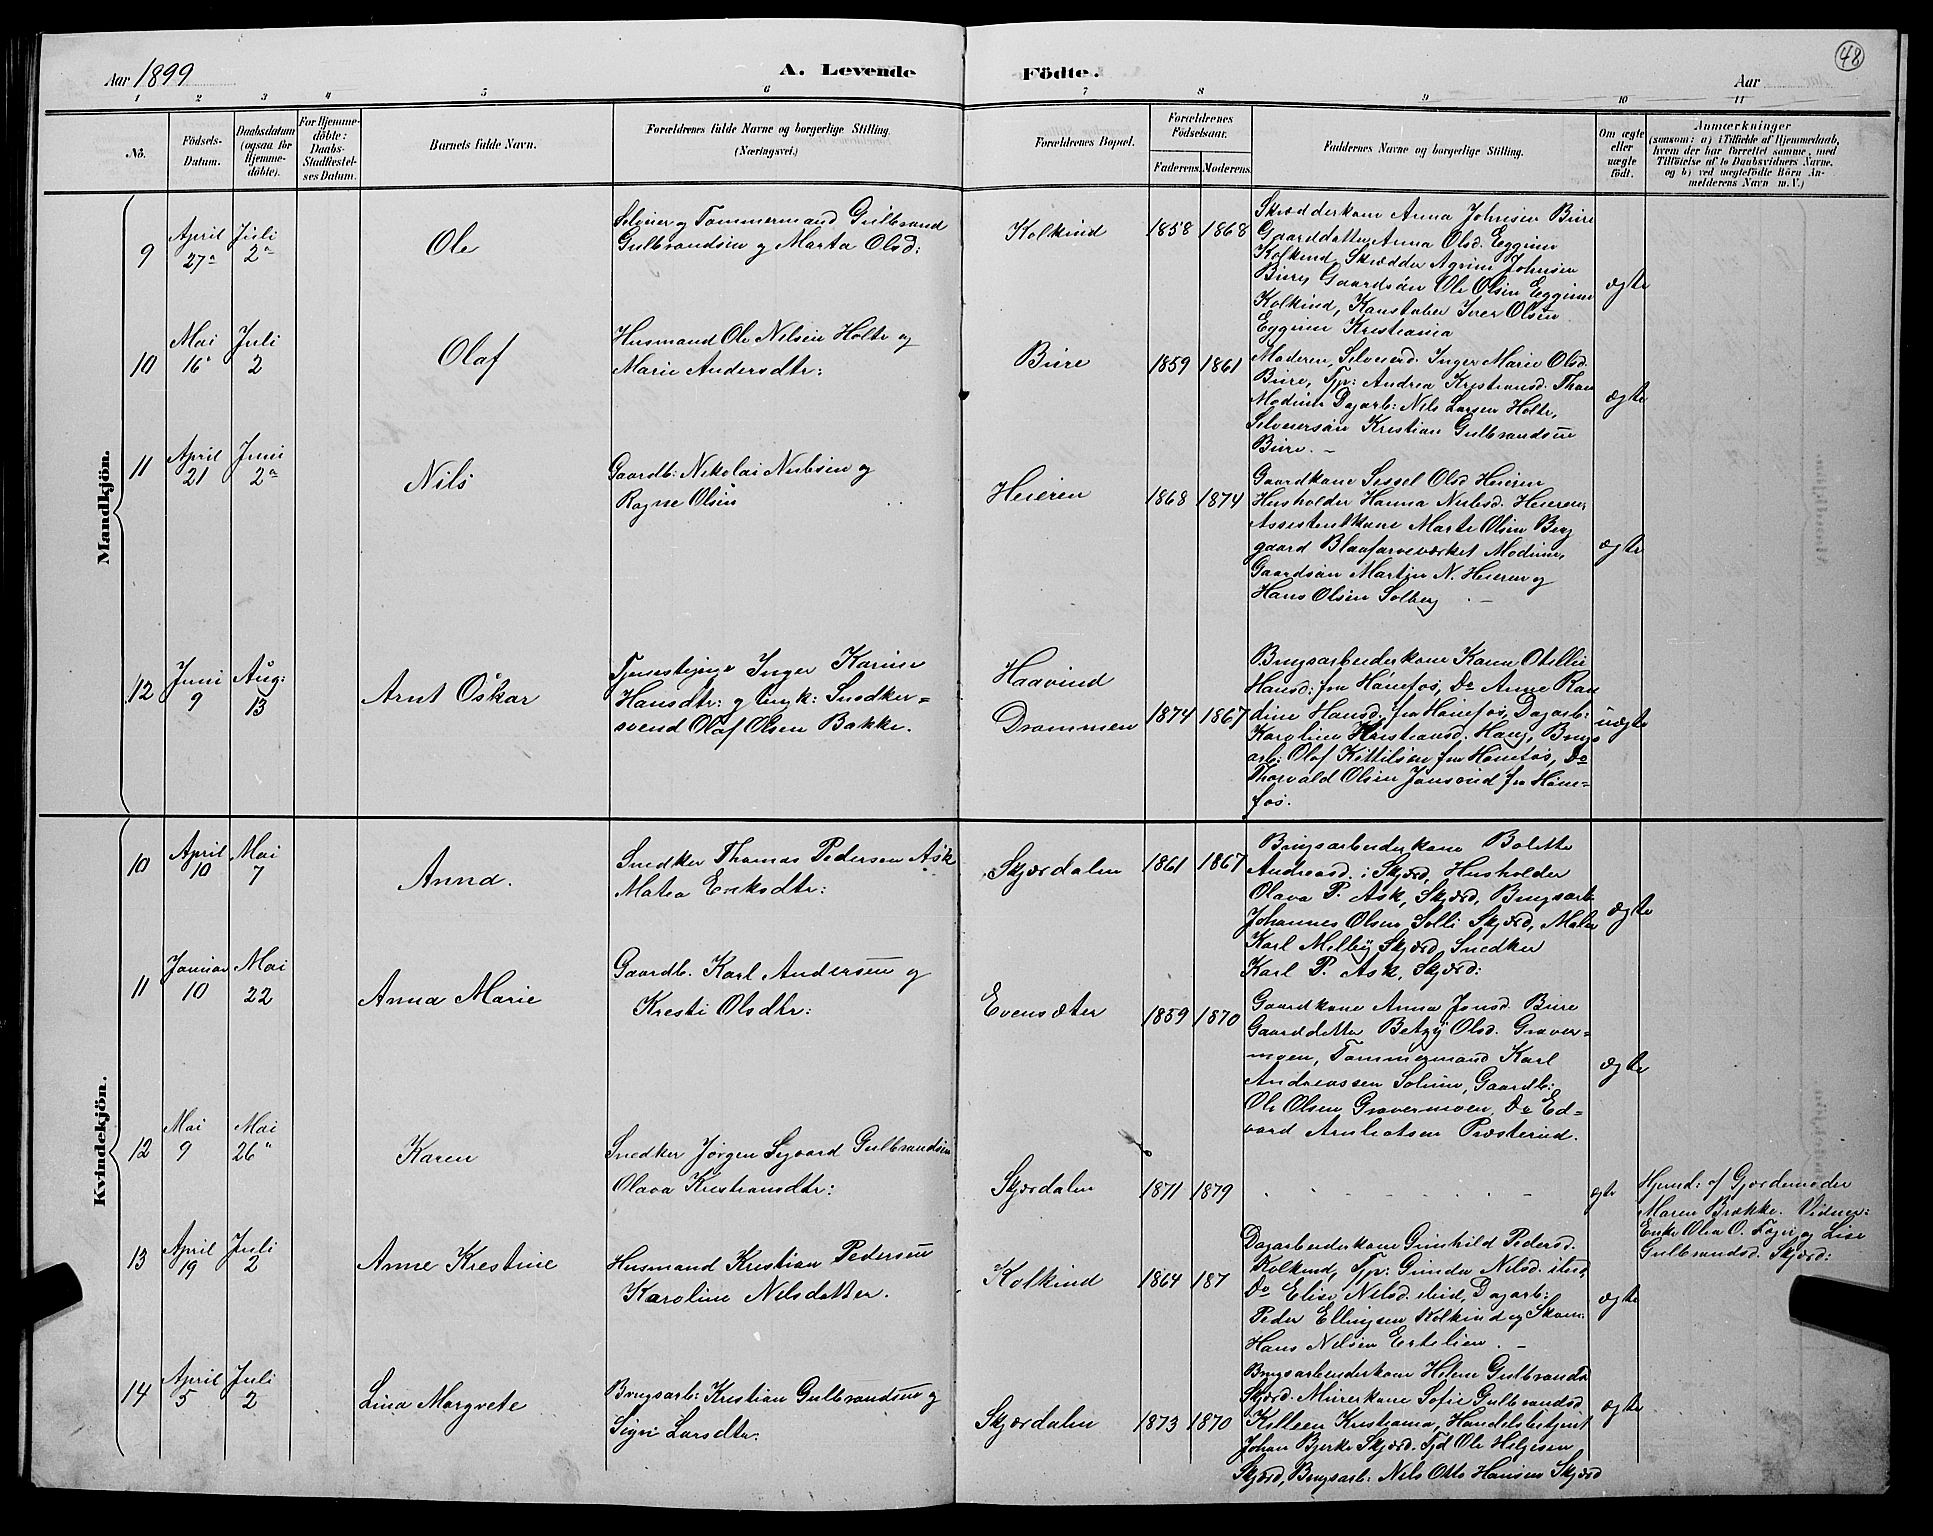 Aar 1899
A. Levende Födte.
Aar
48
1 2 3 4 5 6 7 8 9 10 11
No.
Födsels-Datum.
Daabsdatum (ogsaa for Hjemme-döbte).
For Hjemme-döbte: Daabs-Stadfæstel-ses Datum.
Barnets fulde Navn.
Forældrenes fulde Navne og borgerlige Stilling. (Næringsvei.)
Forældrenes Bopæl.
Forældrenes Födselsaar.
Faderens. Moderens.
Faddernes Navne og borgerlige Stilling.
Om ægte eller uægte födt.
Anmærkninger
(saasom: a) i Tilfælde af Hjemmedaab, hvem der har forrettet samme, med Tilföielse af to Daabsvidners Navne, og b) ved uægtefödte Börn An-melderens Navn m. V.)
Mandkjön.
9
April 27de
Juli 2den
Ole
Selveier og Tømmermand Gulbrand
Gulbrandsen og Marta Olsd:
Kolkind
1858 1868
Skrædderkone Anna Johnsen Bure
Gaarddatter Anna Olsd. Eggum
Kolkind, Skrædder Johnsen
Bure, Gaardsøn Ole Olsen Eggum
Kolkind, Konstabel Iver Olsen
Eggum Kristiania
ægte
10
Mai 16de
Juli 2
Olaf
Husmand Ole Nilsen Holte og
Marie Andersdtr:
Bure
1859 1861
Moderen, Selveierd. Inger Marie Olsd.
Bure, Tjp: Andrea Kristiansd.
Modum Dagarb: Nils Larsen Holte,
Selveiersøn Kristian Gulbrandsen
Bure. –
ægte
11
April 21
Juni 2den
Nils
Gaardb: Nikolai Nubsen og
Ragne Olsen
Heieren
1868 1874
Gaardkone Sessel Olsd Heieren
Husholder Hanna Nubsd. Heieren,
Assistentkone Marte Olsen Berg
gaard Blaafarveværket Modum,
Gaardsøn Martin N. Heieren og
Hans Olsen Solberg –
ægte
12
Juni 9
Aug: 13
Arnt Oskar
Tjenestepige Inger Karine
Hansdtr: og Ungk: Snedker=
svend Olaf Olsen Bakke.
Haavind
Drammen
1874 1867
Brugsarbeiderkone Karen Otellie
Hansd: fra Hönefos, Do Anne Ran
dine Hansd. fra Hönefos, Dagarb:
Karoline Kristiansd. Haug, Brugs
arb: Olaf Kittilsen fra Hönefos, Do
Thorvald Olsen fra Höne=
fos.
uægte
Kvindekjön.
10
April 10
Mai 7
Anna.
Snedker Thomas Pedersen Ask
Matea Eriksdtr:
Skjærdalen
1861 1867
Brugsarbeiderkone Bolette
Andreasd. i Skjærd, Husholder
Olava P. Ask, Skjærd, Brugsarb.
Johannes Olsen Solli Skjærd, Maler
Karl Melby Skjærd, Snedker
Karl P. Ask, Skjærd:
ægte
11
Januar 10
Mai 22
Anna Marie
Gaardb. Karl Andersen og
Kresti Olsdtr:
Evensæter
1859 1870
Gaardkone Anna Jonsd. Bure
Gaarddatter Betzy Olsd. Graver=
moen, Tømmermand Karl
Andreassen Solum, Gaardb:
Ole Olsen Gravermoen, Do Ed=
vard Præsterud.
ægte
12
Mai 9
Mai 26de
Karen
Snedker Jørgen Sigvard Gulbrandsen
Olava Kristiansdtr:
Skjærdalen
1871 1879
ægte
Hjemd: af Gjordemoder
Maren Brække. Vidner:
Enke Olea O. og Lise
Gulbrandsd. Skjærd:
13
April 19
Juli 2
Anne Krestine
Husmand Kristian Pedersen
Karoline Nilsdatter.
Kolkind
1864 187
Dagarbeiderkone Gunhild Pedersd.
Kolkind, Tjp: Gunda Nilsd.
Do Elise Nilsd. Dagarb:
Peder Ellingsen Kolkind og Skom:
Hans Nilsen –
ægte
14
April 5
Juli 2
Lina Margrete
Brugsarb: Kristian Gulbrandsen og
Signe Larsdtr.
Skjærdalen
1873 1870
Brugsarbeiderkone Helene Gulbrandsd
Skjærd. Murerkone Sofie Gulbrandsd
Kristiania, Handelsbetjent
Johan Bjerke Skjærd. Ole Helgesen
Skjærd, Brugsarb: Nils Otto Hansen Skjærd
ægte